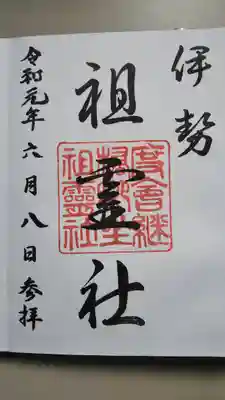 伊勢
祖霊社
令和元年六月八日参拝
度会継
祖靈社